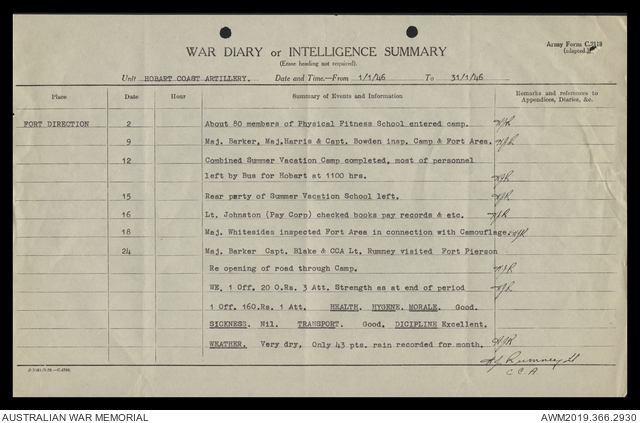 Army Form C.2118
(adapted.)
WAR DIARY or INTELLIGENCE SUMMARY
(Erase heading not required).
Unit HOBART COAST ARTILLERY. Date and Time.—From 1/1/46 To 31/1/46
Place Date Hour Summary of Events and Information Remarks and references to Appendices, Diaries, &c.
FORT DIRECTION 2 About 80 members of Physical Fitness School entered camp. HJR
9 Maj. Barker, Maj.Harris & Capt. Bowden insp. Camp & Fort Area. HJR
12 Combined Summer Vacation Camp completed, most of personnel
left by Bus for Hobart at 1100 hrs. HJR
15 Rear party of Summer Vacation School left. HJR
16 Lt. Johnston (Pay Corp) checked books pay records & etc. HJR
18 Maj. Whitesides inspected Fort Area in connection with Camouflage. HJR
24 Maj. Barker Capt. Blake & CCA Lt. Rumney visited Fort Pierson
Re opening of road through Camp. HJR
WE. 1 Off. 20 O.Rs. 3 Att. Strength as at end of period HJR
1 Off. 16O.Rs. 1 Att. HEALTH. HYGENE. MORALE. Good.
SICKNESS. Nil. TRANSPORT. Good. DICIPLINE Excellent.
WEATHER. Very dry, Only 43 pts. rain recorded for month. HJR
HJ Rumney Lt
C.C.A
AUSTRALIAN WAR MEMORIAL AWM2019.366.2930